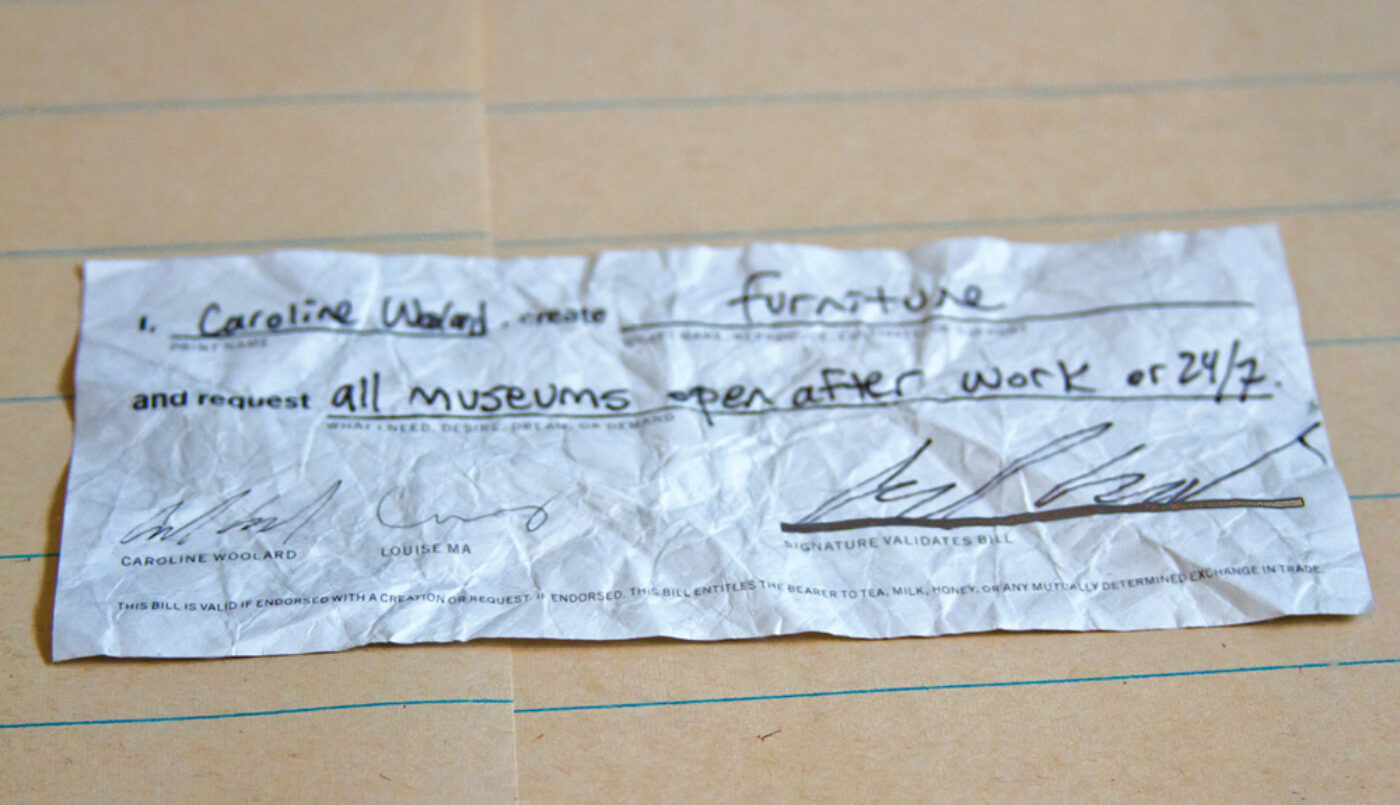 I, Caroline Woolard, create furniture
PRINT NAME
and request all museums open after work or 24/7.
WHAT I NEED, DESIRE, DREAM, OR DEMAND
CAROLINE WOOLARD LOUISE MA
SIGNATURE VALIDATES BILL
THIS BILL IS VALID IF ENDORSED WITH A CREATION OR REQUEST. IF ENDORSED, THIS BILL ENTITLES THE BEARER TO TEA, MILK, HONEY, OR ANY MUTUALLY DETERMINED EXCHANGE IN TRADE.